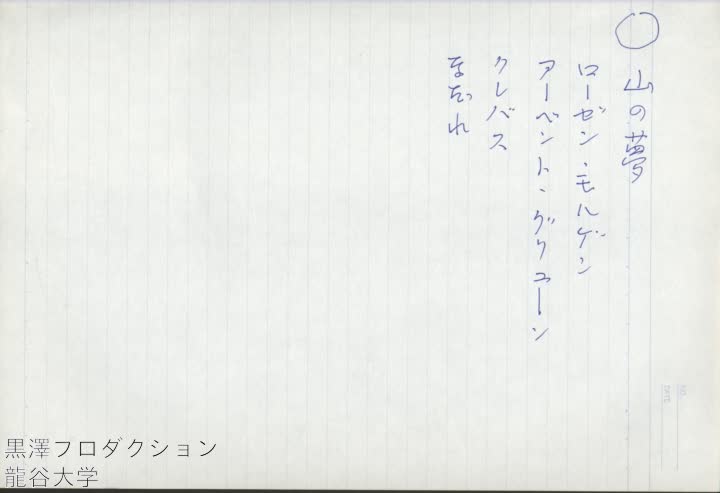 ○ 山の夢
ローゼン・モルゲン
アーベント・グリューン
クレバス
なだれ
NO.
DATE
黒澤フロダクション
龍谷大学